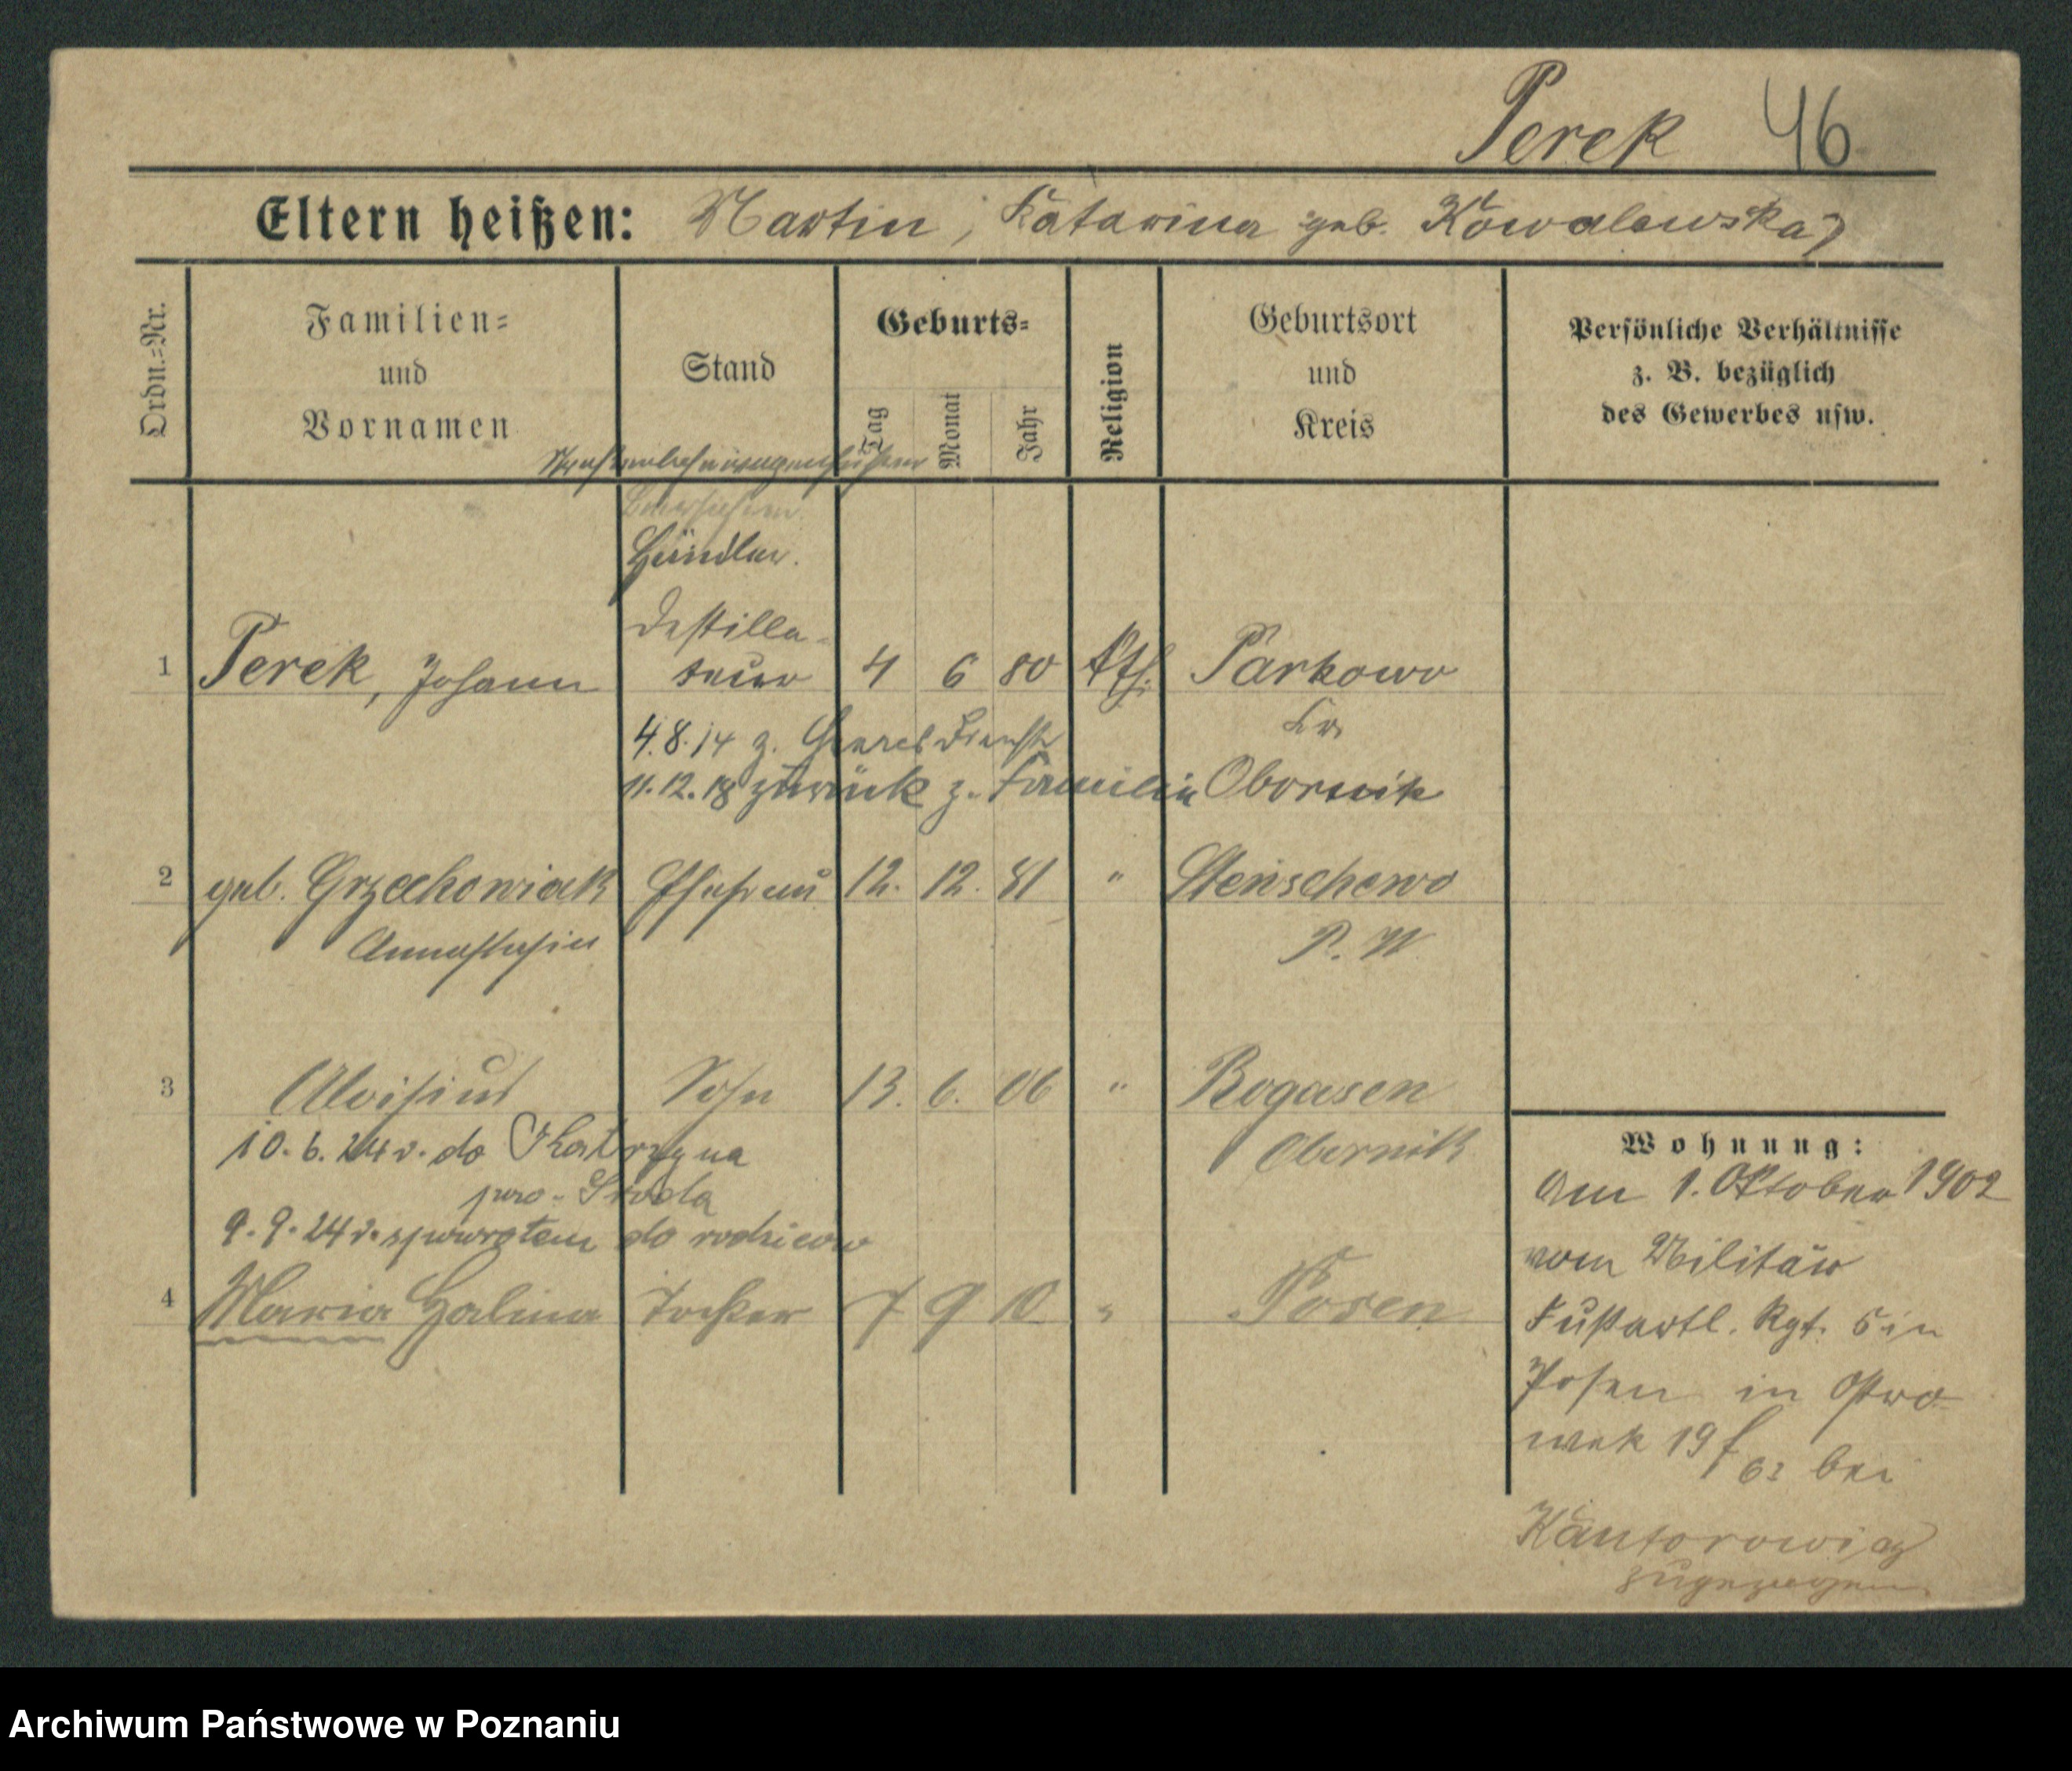 Perek 46
Eltern heißen: Martin, Katarina geb. Kowalewska
Ordn.=Nr.
Familien=
und
Vornamen
Stand
Geburts=
Tag
Monat
Jahr
Religion
Geburtsort
und
Kreis
Persönliche Verhältnisse
z. B. bezüglich
des Gewerbes usw.
Händler.
Destilla-
teur
1 Perek, Johann 4 6 80 kth. Parkowo
Kr.
4.8.14 z. Heeres Dienste
11.12.18 zurück z. Familie Obornik
2 geb. Grzechowiak Ehefrau 12. 12. 81 " Stenschewo
Annastasia P. W.
3 Aloisius Sohn 13. 6. 06 " Rogasen
Obornik
10.6.24 r. do
pow. Środa
9.9.24 r. spowrotem do rodziców
4 Maria Halina Tochter 7 9 10 " Posen
Wohnung:
Am 1. Oktober 1902
vom Militär
Fußartl. Rgt. 5 in
Posen in Ostro-
wek 19 bei
Kantorowicz
zugezogen
Archiwum Państwowe w Poznaniu